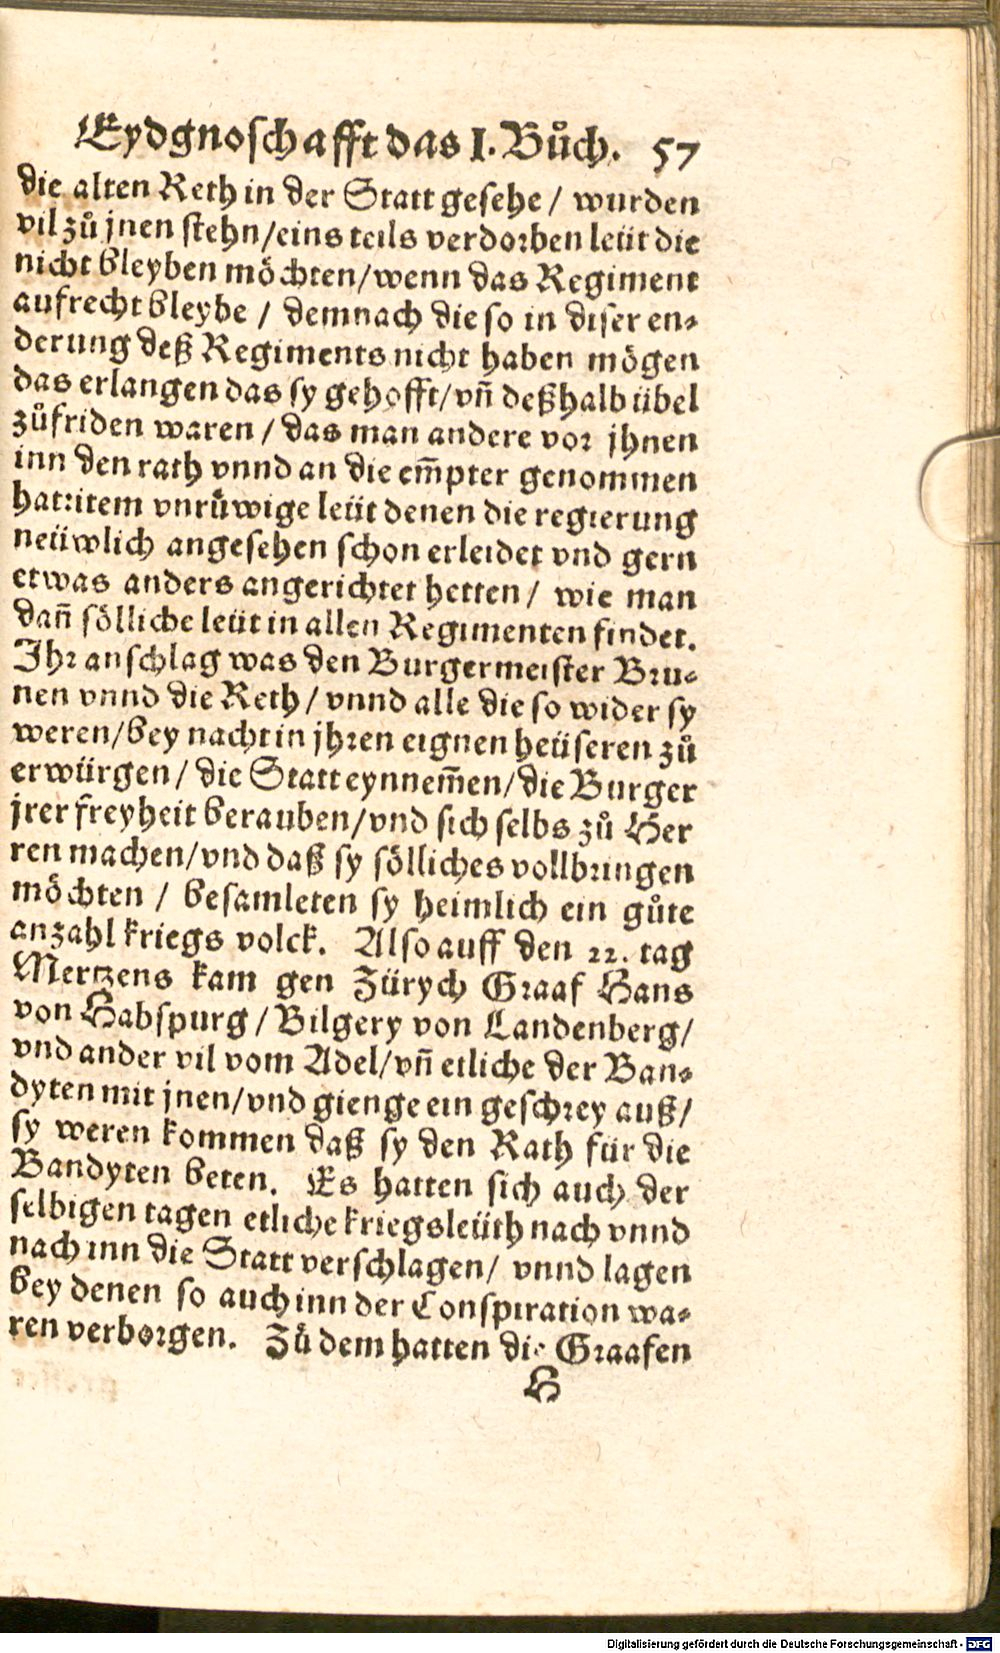 Eydgnoschafft das I. Bůch. 57
die alten Reth in der Statt gesehe / wurden
vil zů jnen stehn/eins teils verdorben leüt die
nicht bleyben möchten/wenn das Regiment
aufrecht bleybe / demnach die so in diser en⸗
derung deß Regiments nicht haben mögen
das erlangen das sy gehofft/vñ deßhalb übel
zůfriden waren / das man andere vor jhnen
inn den rath vnnd an die em̃pter genommen
hat:item vnrůwige leüt denen die regierung
neüwlich angesehen schon erleidet vnd gern
etwas anders angerichtet hetten / wie man
dañ sölliche leüt in allen Regimenten findet.
Ihr anschlag was den Burgermeister Bru⸗
nen vnnd die Reth / vnnd alle die so wider sy
weren/bey nacht in jhren eignen heüseren zů
erwürgen / die Statt eynnem̃en/die Burger
jrer freyheit berauben/vnd sich selbs zů Her
ren machen/vnd daß sy sölliches vollbringen
möchten / besamleten sy heimlich ein gůte
anzahl kriegs volck. Also auff den 22. tag
Mertzens kam gen Zürych Graaf Hans
von Habspurg / Bilgery von Landenberg/
vnd ander vil vom Adel/vñ etliche der Ban⸗
dyten mit jnen/vnd gienge ein geschrey auß/
sy weren kommen daß sy den Rath für die
Bandyten beten. Es hatten sich auch der
selbigen tagen etliche kriegsleüth nach vnnd
nach inn die Statt verschlagen/ vnnd lagen
bey denen so auch inn der Conspiration wa⸗
ren verborgen. Zů dem hatten die Graafen
H
Digitalisierung gefördert durch die Deutsche Forschungsgemeinschaft - DFG